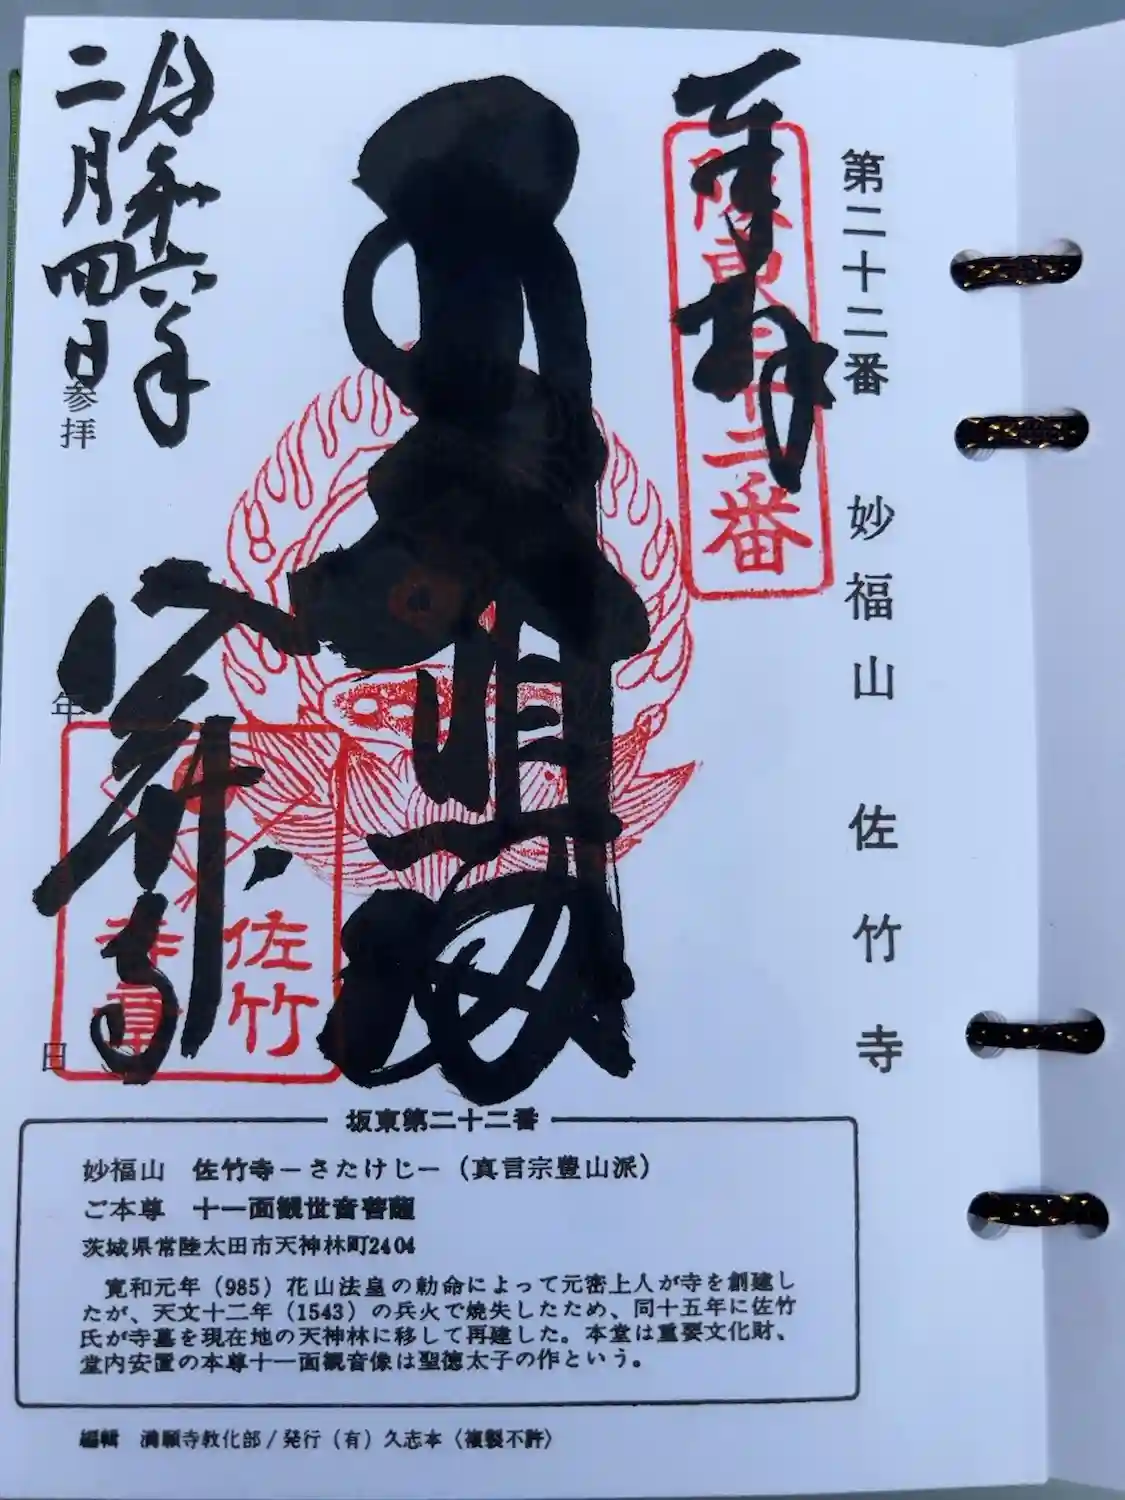 第二十二番 妙福山 佐竹寺
奉拝
坂東二十二番
令和六年
二月四日
参拝
年
日
佐竹
寺章
坂東第二十二番
妙福山 佐竹寺−さたけじ−（真言宗豊山派）
ご本尊 十一面観世音菩薩
茨城県常陸太田市天神林町2404
寛和元年（985）花山法皇の勅命によって元密上人が寺を創建し
たが、天文十二年（1543）の兵火で焼失したため、同十五年に佐竹
氏が寺墓を現在地の天神林に移して再建した。本堂は重要文化財、
堂内安置の本尊十一面観音像は聖徳太子の作という。
編輯 満願寺教化部/発行（有）久志本〈複製不許〉